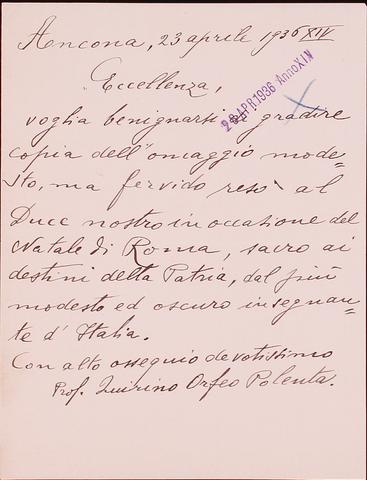 Ancona, 23 aprile 1936 XIV
28 APR. 1936 Anno XIV
Eccellenza,
voglia benignarsi di gradire
copia dell'omaggio mode=
sto, ma fervido reso al
Duce nostro in occasione del
Natale di Roma, sacro ai
destini della Patria, dal più
modesto ed oscuro insegnan=
te d'Italia.
Con alto ossequio devotissimo
Prof. Quirino Orfeo Polenta.